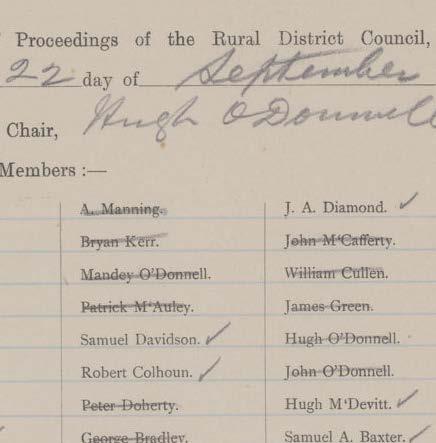 Proceedings of the Rural District Council,
22 day of September
Chair, Hugh O'Donnell
Members :—
A. Manning. J. A. Diamond.
Bryan Kerr. John M'Cafferty.
Mandey O'Donnell. William Cullen.
Patrick M'Auley. James Green.
Samuel Davidson. Hugh O'Donnell.
Robert Colhoun. John O'Donnell.
Peter Doherty. Hugh M'Devitt.
George Bradley. Samuel A. Baxter.